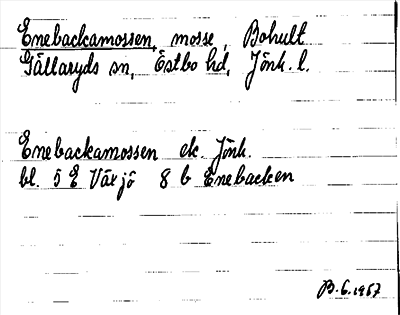 Enebackamossen, mosse, Bohult
Gällaryds sn, Östbo hd, Jönk. l.
Enebackamossen ek. Jönk.
bl. 5 E Växjö 8 b Enebacken
B. G. 1967